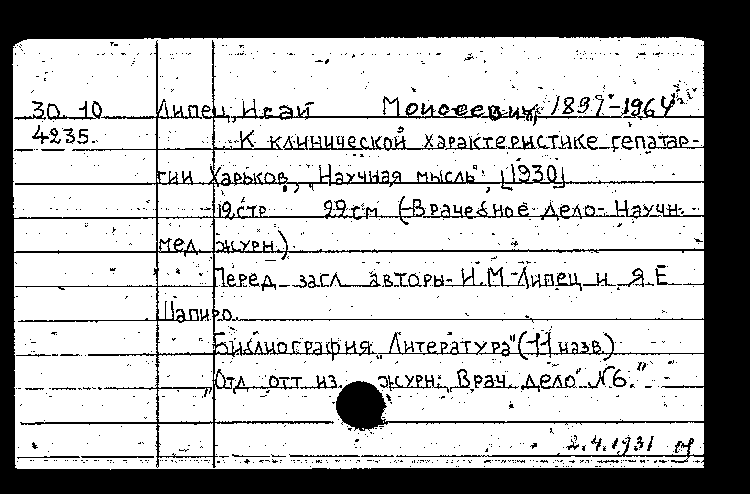 30. 10 Липец, Исай Моисеевич, 1897-1964
4235. К клинической характеристике гепатар-
гии Харьков, „Научная мысль", [1930]
12 стр 22 см (-Врачебное дело- Научн.
мед. журн.)
Перед загл авторы- И.М Липец и Я.Е
Шапиро.
Библиография „Литература" (11 назв)
„Отд. отт из журн: „Врач. дело" №6."
2.4.1931